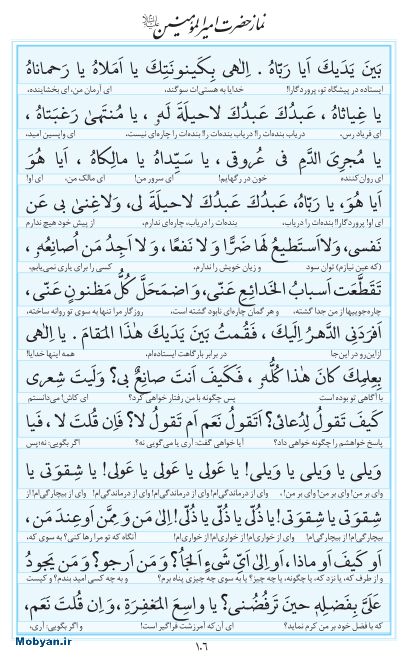 نماز حضرت امیرالمؤمنین علیه‌السلام
بَینَ یَدَیكَ اَیا رَبّاهُ . اِلٰهی بِکَینونَتِكَ یا اَمَلاهُ یا رَحماناهُ
ایستاده در پیشگاه تو، پروردگارا! خدایا به هستی‌ات سوگند، ای آرمان من، ای بخشاینده،
یا غِیاثاهُ ، عَبدُكَ عَبدُكَ لاحیلَةَ لَهُ ، یا مُنتَهیٰ رَغبَتاهُ ،
ای فریاد رس، دریاب بنده‌ات را! دریاب بنده‌ات را! بنده‌ات را چاره‌ای نیست، ای واپسین امید،
یا مُجرِیَ الدَّمِ فی عُروقی ، یا سَیِّداهُ یا مالِکاهُ ، اَیا هُوَ
ای روان‌کننده خون در رگهایم! ای سرور من! ای مالک من، ای او!
اَیا هُوَ، یا رَبّاهُ، عَبدُكَ عَبدُكَ لاحیلَةَ لی، وَلاغِنیٰ بی عَن
ای او! پروردگارا! بنده‌ات را دریاب، بنده‌ات را دریاب، چاره‌ای ندارم، از پیش خود هیچ ندارم
نَفسی، وَلااَستَطیعُ لَها ضَرًّا وَلا نَفعًا، وَلا اَجِدُ مَن اُصانِعُهُ ،
(که عین نیازم) توان سود و زیان خویش را ندارم، کسی را برای یاری نمی‌یابم،
تَقَطَّعَت اَسبابُ الخَدائِعِ عَنّی، وَاضمَحَلَّ کُلُّ مَظنونٍ عَنّی،
چاره‌جویی‌ها از من جدا گشته، و هر گمان چاره‌ای نابود گشته است، روزگار مرا تنها به سوی تو روانه ساخته،
اَفرَدَنِی الدَّهرُ اِلَیكَ ، فَقُمتُ بَینَ یَدَیكَ هٰذَا المَقامَ . یا اِلٰهی
ازاین‌رو در این‌جا در برابر بارگاهت ایستاده‌ام. همه اینها خدایا!
بِعِلمِكَ کانَ هٰذا کُلُّهُ ، فَکَیفَ اَنتَ صانِعٌ بی؟ وَلَیتَ شِعری
با آگاهی تو بوده است پس چگونه با من رفتار خواهی کرد؟ ای کاش! می‌دانستم
کَیفَ تَقولُ لِدُعائی؟ اَتَقولُ نَعَم اَم تَقولُ لا؟ فَاِن قُلتَ لا ، فَیا
پاسخ خواهشم را چگونه خواهی داد؟ آیا خواهی گفت: آری یا می‌گویی نه؟ اگر بگویی: نه؛ پس
وَیلی یا وَیلی یا وَیلی! یا عَولی یا عَولی یا عَولی! یا شِقوَتی یا
وای بر من! وای بر من! وای بر من!، وای از درماندگی‌ام! وای از درماندگی‌ام! وای از درماندگی‌ام! وای از بیچارگی‌ام! وای از
شِقوَتی یا شِقوَتی! یا ذُلّی یا ذُلّی یا ذُلّی! اِلیٰ مَن وَ مِمَّن اَوعِندَ مَن ،
بیچارگی‌ام! وای از بیچارگی‌ام! وای از خواری‌ام! وای از خواری‌ام! وای از خواری‌ام! آنگاه که تو مرا رها کنی؟ به سوی که،
اَو کَیفَ اَو ماذا، اَو اِلیٰ اَیِّ شَیءٍ اَلجَأُ؟ وَمَن اَرجو؟ وَمَن یَجودُ
و از طرف که، یا نزد که، یا چگونه، یا چه چیز؟ یا به سوی چه چیزی پناه برم؟ و به چه کسی امید بندم؟ و کیست
عَلَیَّ بِفَضلِهِ حینَ تَرفُضُنی؟ یا واسِعَ المَغفِرَةِ، وَاِن قُلتَ نَعَم،
که با فضل خود بر من کرم نماید؟ ای آن که آمرزشت فراگیر است! و اگر بگویی: آری،
۱۰۶
Mobyan.ir